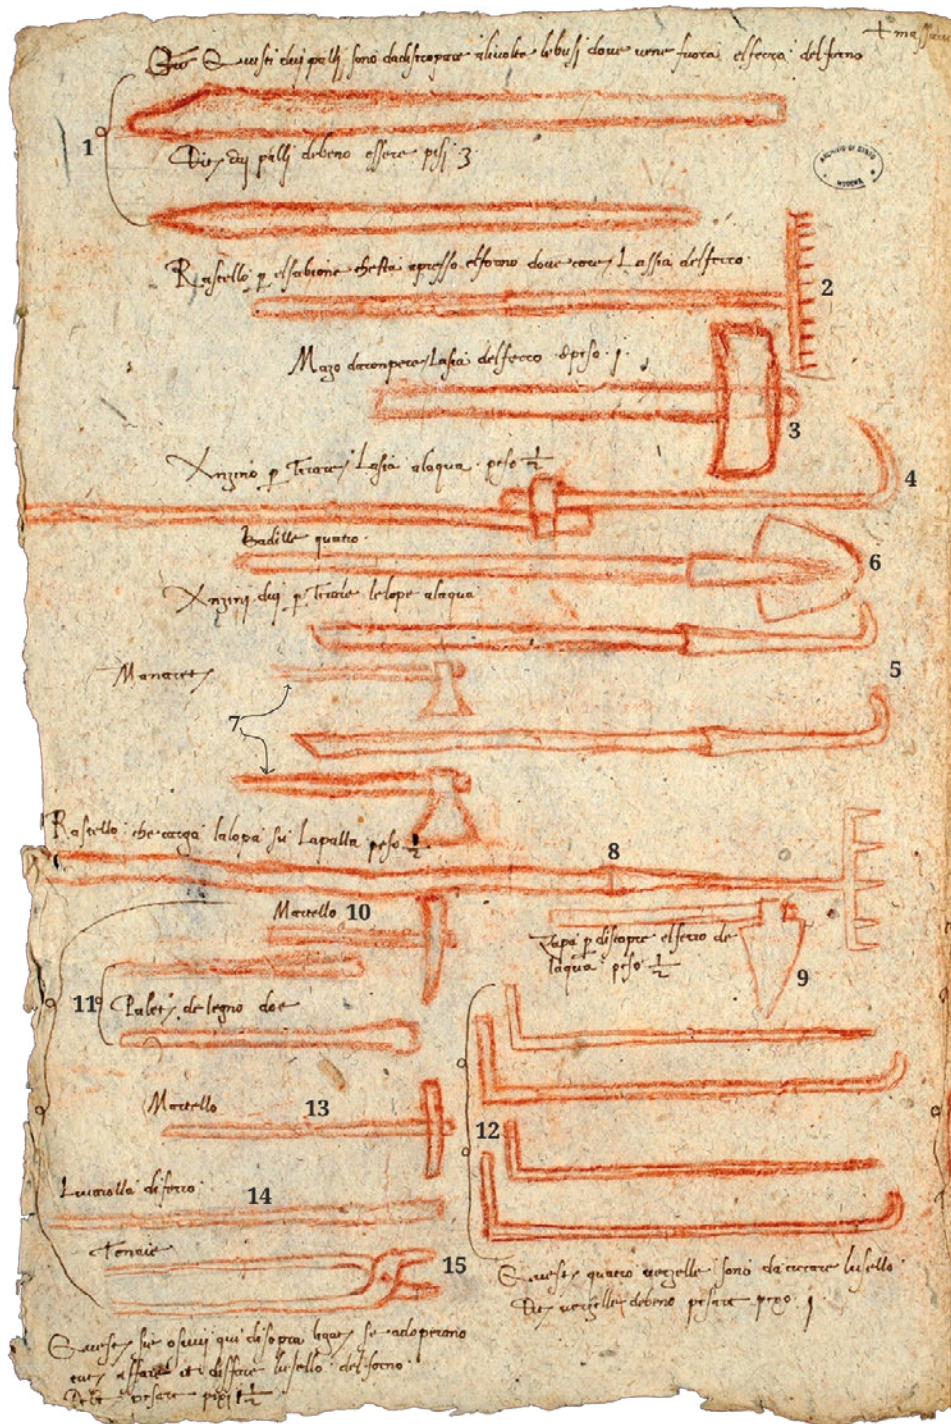 + massari
Questi dui palli sono da distropare ale volte le busi dove vene fuora el ferro del forno
1
Diti dui palli debeno essere pesi 3
ARCHIVIO DI STATO
MODENA
Rastello p el sabione che sta apresso el forno dove core La ssia del ferro
2
Mazo da rompere La sia del ferro de peso j
3
Anzino p Tirare La sia a laqua peso 1/2
4
Badille quatro
6
Anzinj dui p Tirare le lope a laqua
Manarete
5
7
Rastello che carga la lopa su La palla peso 1/2
8
Martello 10
Zapa p discopre el ferro de
laqua peso 1/2
9
11
Palete de legno doe
Martello
13
12
Livarolla di ferro
14
Tenaie
15
Queste quatro verzelle sono da curare lusello
Dite verzelle debeno pesare pezo j
Queste sie osuvij qui di sopra ligate se adoperano
tute affare et diffare lusello del forno
Debe pesare pezi 1 1/2